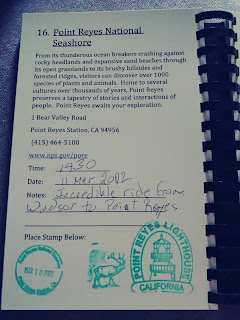 16. Point Reyes National
Seashore
From its thunderous ocean breakers crashing against
rocky headlands and expansive sand beaches through
its open grasslands to its brushy hillsides and
forested ridges, visitors can discover over 1000
species of plants and animals. Home to several
cultures over thousands of years, Point Reyes
preserves a tapestry of stories and interactions of
people. Point Reyes awaits your exploration.
1 Bear Valley Road
Point Reyes Station, CA 94956
(415) 464-5100
www.nps.gov/pore
Time: 1430
Date: 11 Mar 2002
Notes: Incredible ride from
Windsor to Point Reyes
Place Stamp Below:
Point Reyes National Seashore
MAR
Point Reyes Station, CA
POINT REYES LIGHTHOUSE
CALIFORNIA